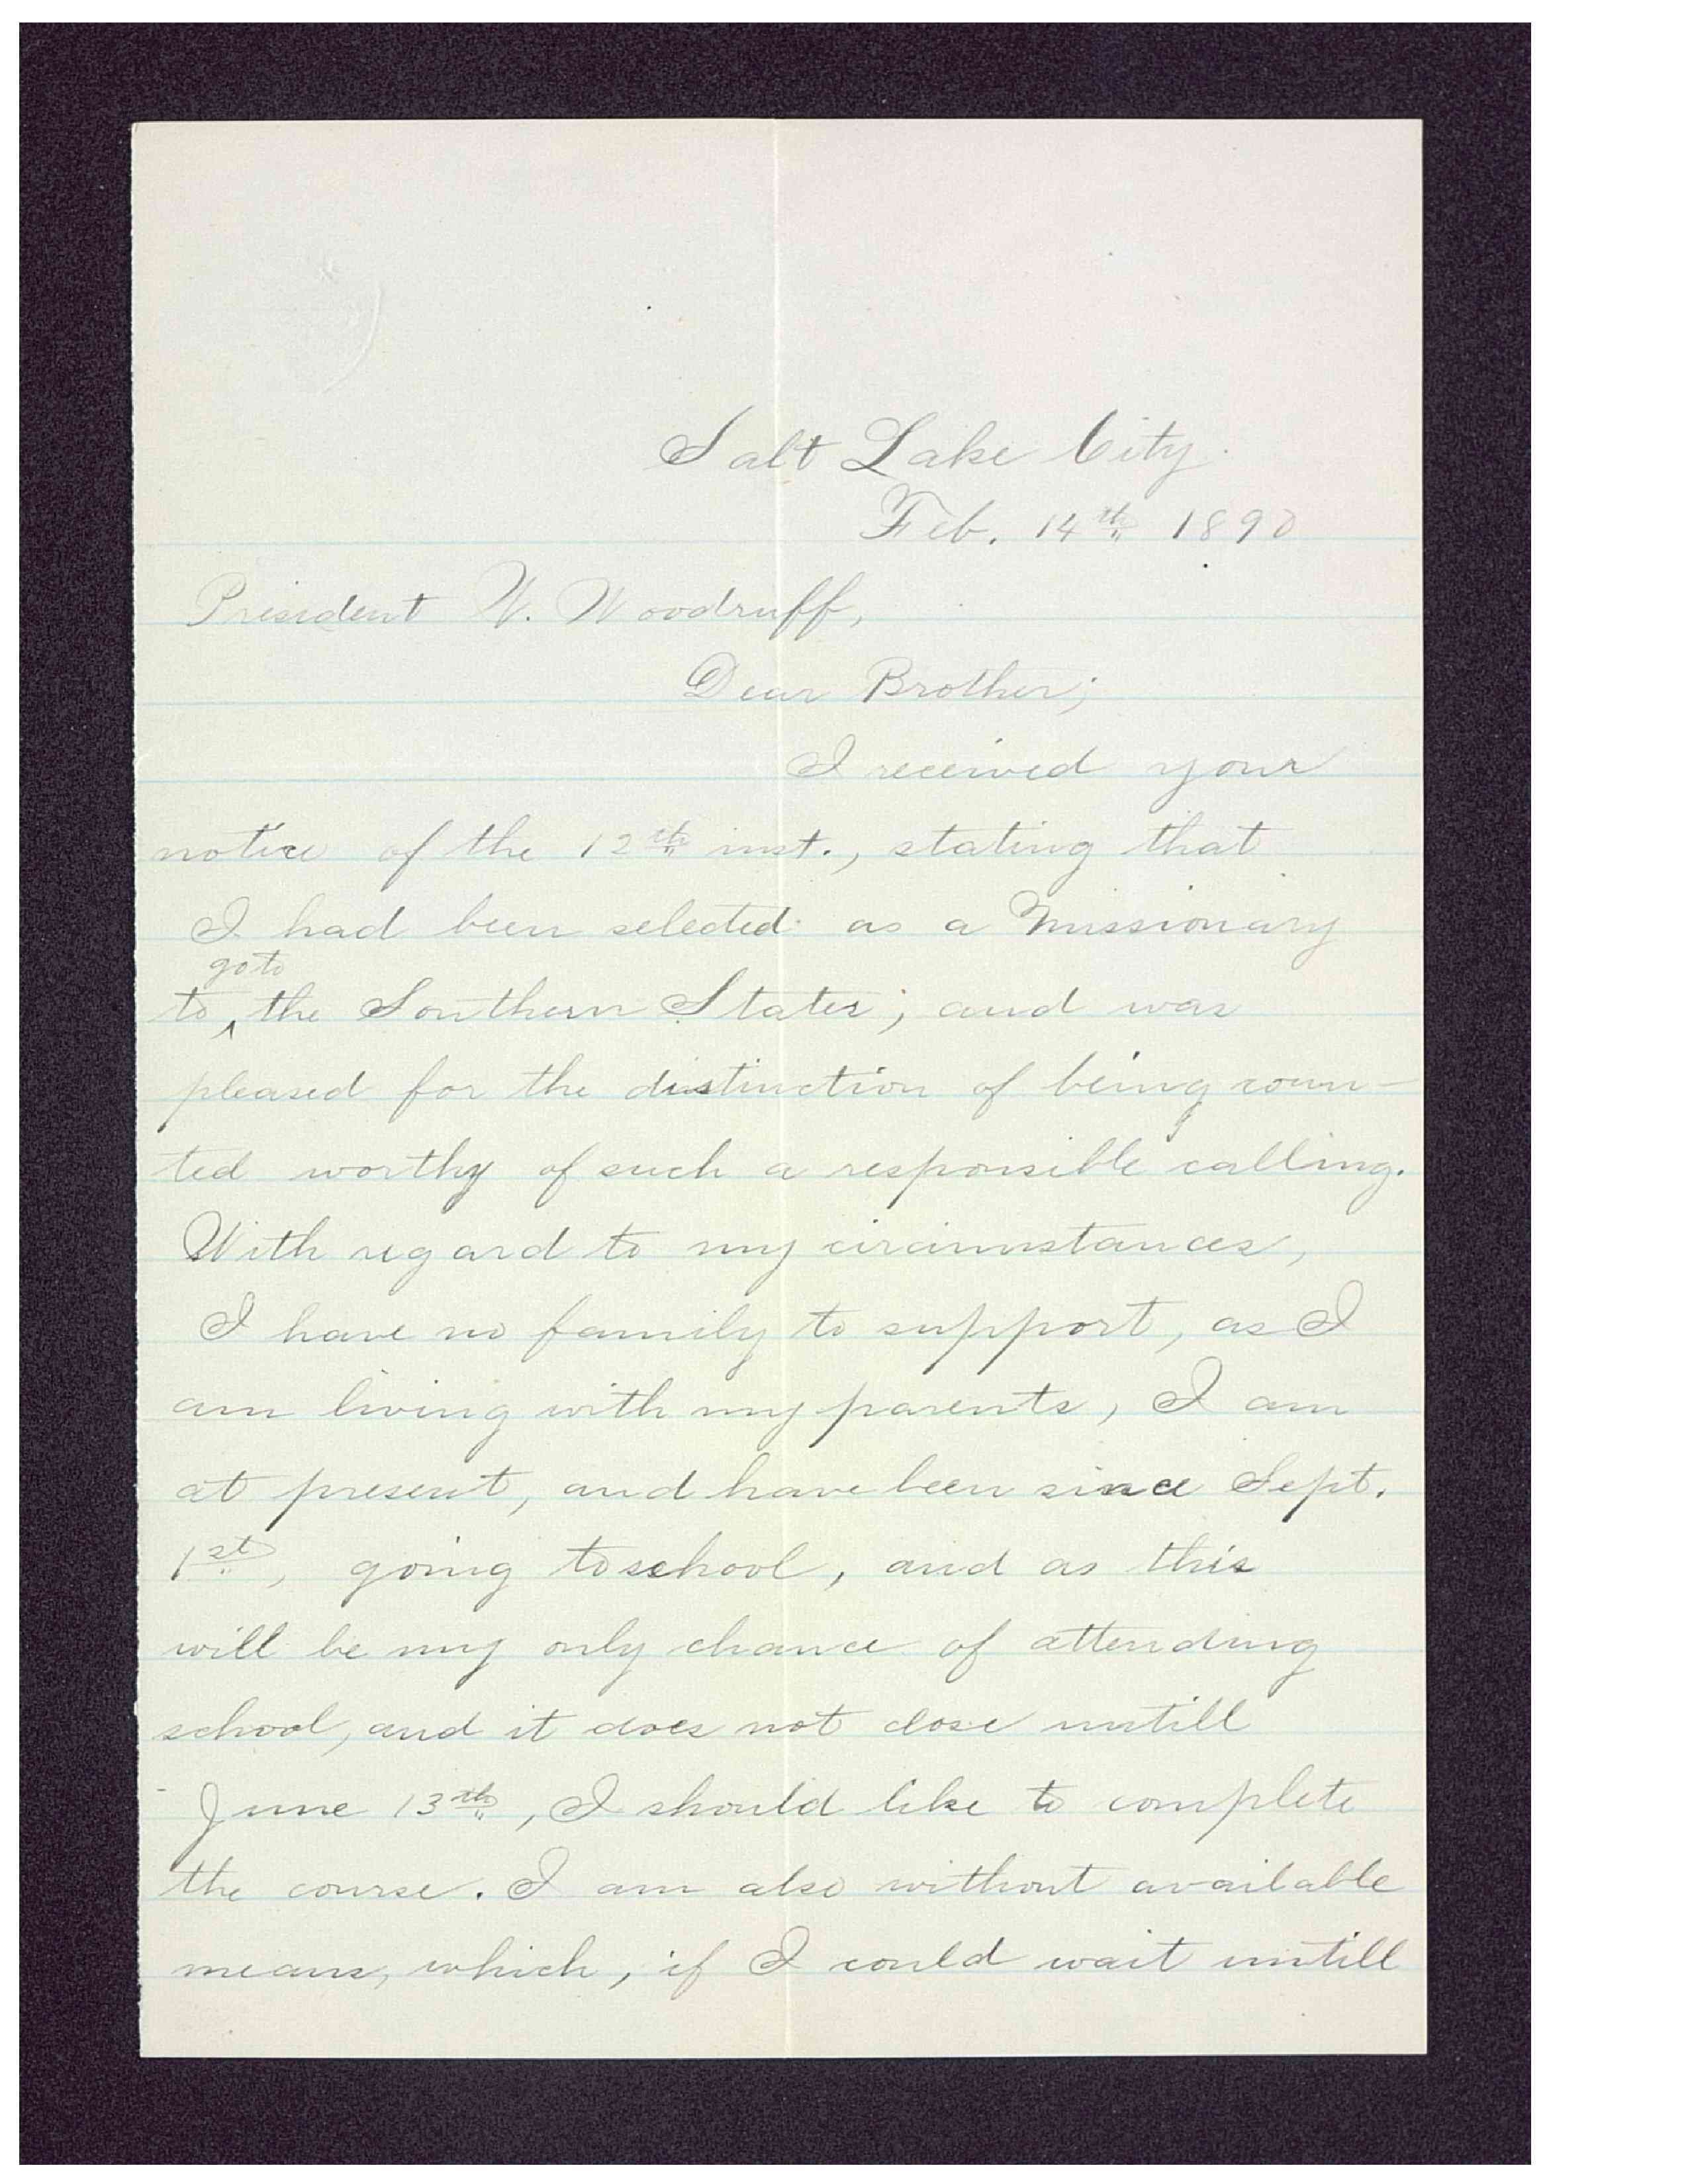 Salt Lake City.
Feb. 14th 1890
President W. Woodruff,
Dear Brother;
I received your
notice of the 12th inst., stating that
I had been selected as a Missionary
go to
to ^ the Southern States; and was
pleased for the distinction of being coun-
ted worthy of such a responsible calling.
With regard to my circumstances,
I have no family to support, as I
am living with my parents, I am
at present, and have been since Sept.
1st, going to school, and as this
will be my only chance of attending
school, and it does not close untill
June 13th, I should like to complete
the course. I am also without available
means, which, if I could wait untill